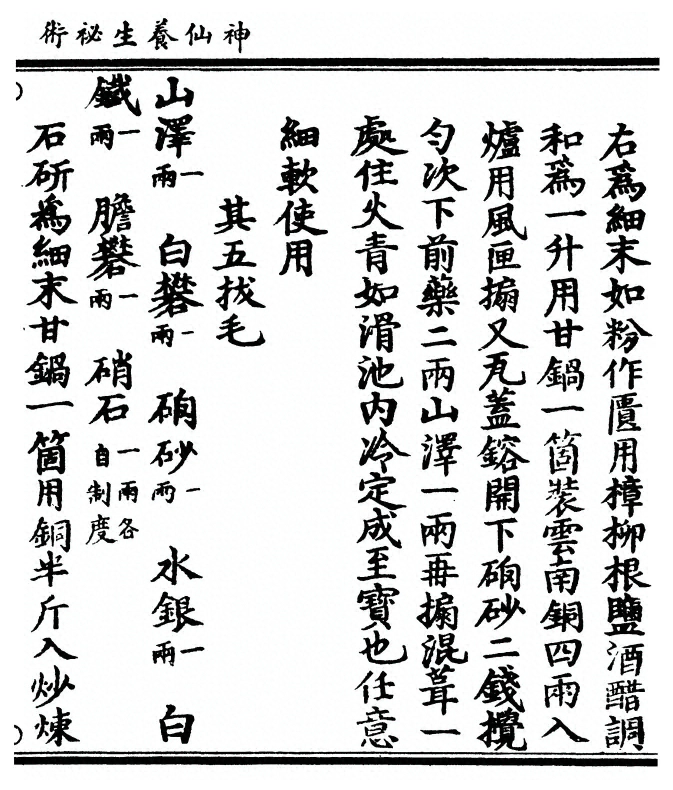 神仙養生祕術
右為細末如粉作匱用樟柳根鹽酒醋調
和為一升用甘鍋一箇裝雲南銅四兩入
爐用風匣搧又瓦蓋鎔開下硇砂二錢攪
勻次下前藥二兩山澤一兩再搧混茸一
處住火青如滑池內冷定成至寶也任意
細軟使用
其五拔毛
山澤一兩 白礬一兩 硇砂一兩 水銀一兩 白
鐵一兩 膽礬一兩 硝石一兩各自制度
石研為細末甘鍋一箇用銅半斤入炒煉